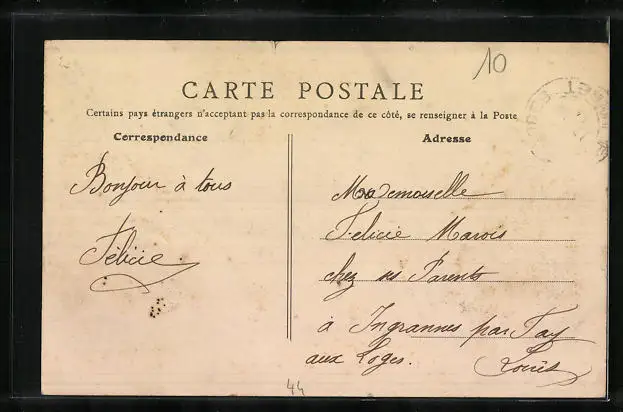 10
CARTE POSTALE
Certains pays étrangers n'acceptant pas la correspondance de ce côté, se renseigner à la Poste
Correspondance
Bonjour à tous
Félicie
Adresse
Mademoiselle
Felicie Marois
chez ses Parents
à Ingrannes par Fay
aux Loges. Loiret
44